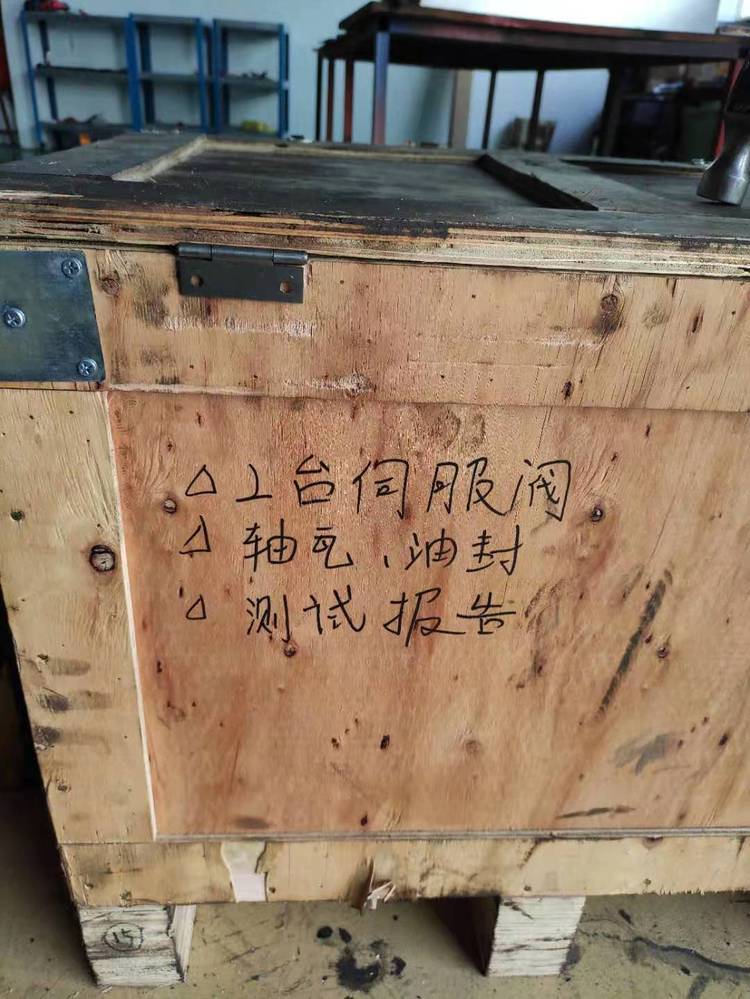 △1台伺服阀
△轴瓦、油封
△测试报告
15